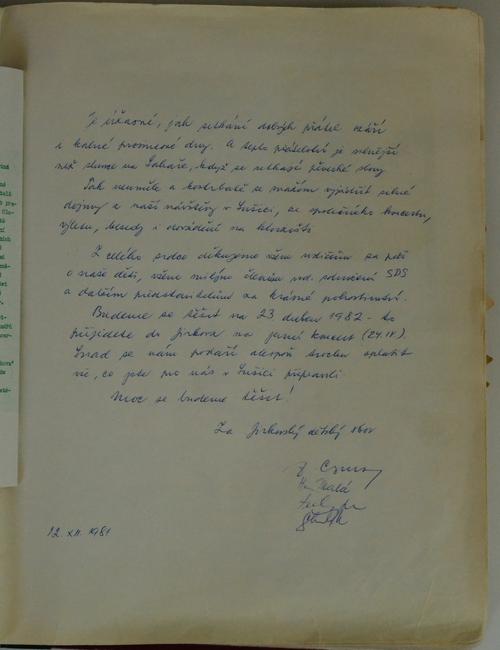 Je úžasné, jak setkání dobrých přátel ozáří
i kalné prosincové dny. A teplo přátelství je silnější
než slunce na Sahaře, když se setkají pěvecké sbory.
Tak neuměle a kostrbatě se snažím vyjádřit silné
dojmy z naší návštěvy v Sušici, ze společného koncertu,
výletu, besedy i
Z celého srdce děkujeme všem rodičům za péči
o naše děti, všem milým členům SDS
a dalším představitelům za krásné pohostinství.
Budeme se těšit na 23. duben 1982 - to
přijedete do Jirkova na jarní koncert (24.IV.).
Snad se nám podaří alespoň trochu oplatit
vše, co jste pro nás v Sušici připravili.
Moc se budeme těšit!
Za Jirkovský dětský sbor
Malá
12. XII. 1981